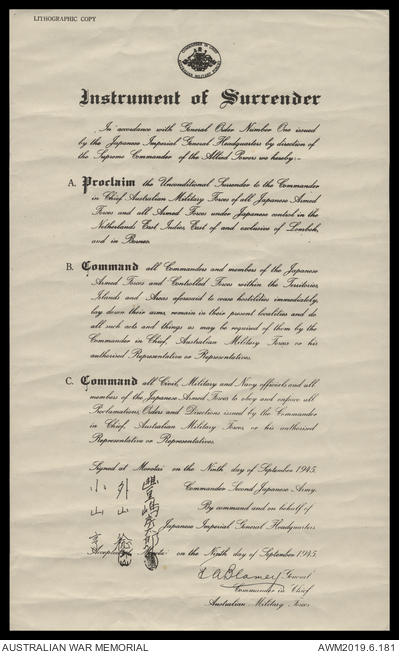 LITHOGRAPHIC COPY
Instrument of Surrender
In accordance with General Order Number One issued
by the Japanese Imperial General Headquarters by direction of
the Supreme Commander of the Allied Powers we hereby:-
A. Proclaim the Unconditional Surrender to the Commander
in Chief Australian Military Forces of all Japanese Armed
Forces and all Armed Forces under Japanese control in the
Netherlands East Indies East of and exclusive of Lombok,
and in Borneo.
B. Command all Commanders and members of the Japanese
Armed Forces and Controlled Forces within the Territories,
Islands and Areas aforesaid to cease hostilities immediately,
lay down their arms, remain in their present localities and do
all such acts and things as may be required of them by the
Commander in Chief, Australian Military Forces or his
authorised Representative or Representatives.
C. Command all Civil, Military and Navy officials and all
members of the Japanese Armed Forces to obey and enforce all
Proclamations, Orders and Directions issued by the Commander
in Chief, Australian Military Forces or his authorised
Representative or Representatives.
Signed at Morotai on the Ninth day of September 1945.
Commander Second Japanese Army.
By command and on behalf of
Japanese Imperial General Headquarters
豊嶋房太郎
外山
小山
Accepted at on the Ninth day of September 1945.
T A Blamey General
Commander in Chief
Australian Military Forces
AUSTRALIAN WAR MEMORIAL
AWM2019.6.181